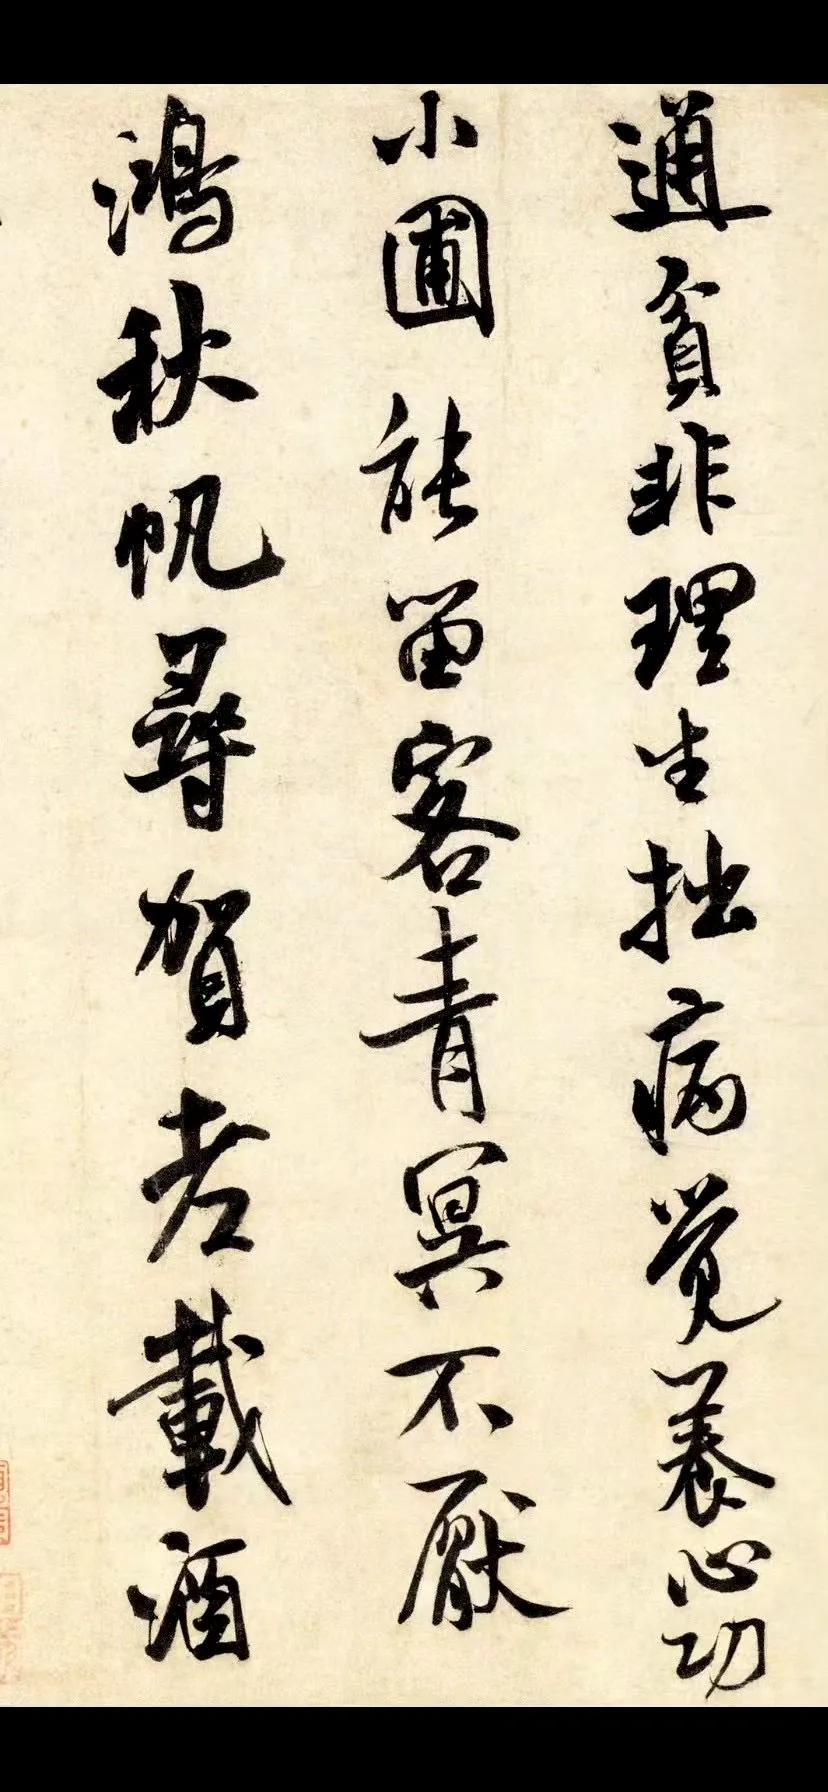 通貧非理生拙病覺養心功
小圃能留客青冥不厭
鴻秋帆尋賀老載酒